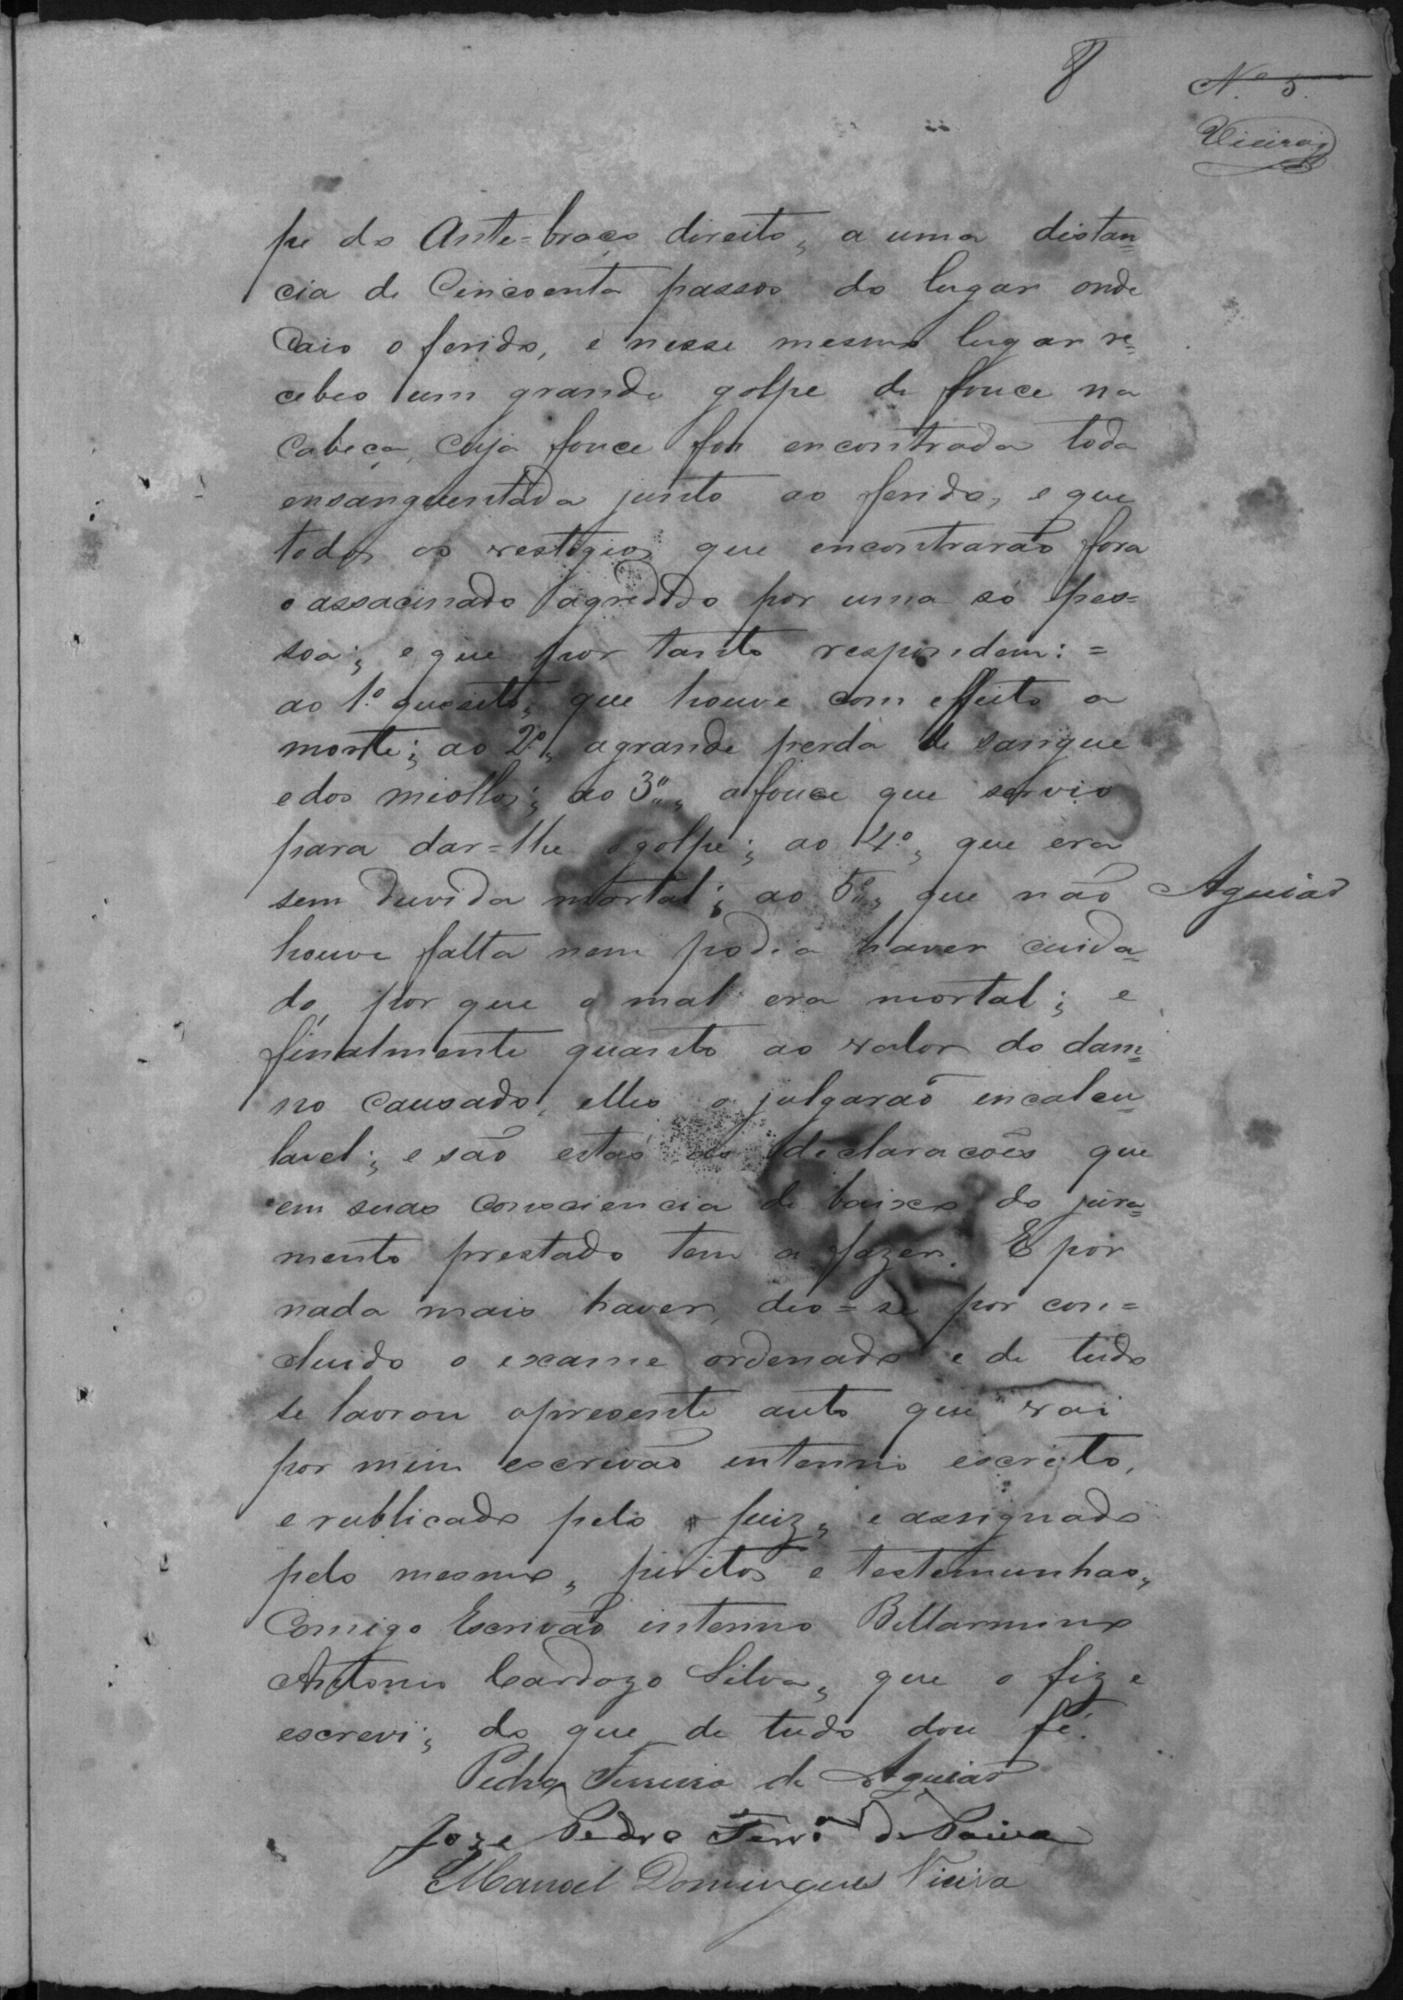 8
N.º 5.
Vieira
pe do Ante=braço direito, a uma distan=
cia de Cincoenta passos do lugar onde
Caio o ferido, e nesse mesmo lugar re=
cebeo um grande golpe de fouce na
Cabeça, cuja fouce foi encontrada toda
ensanguentada junto ao ferido, e que
todos os vestigios que encontrarão fora
o assacinado agredido por uma só pes=
soa; e que por tanto respondem: =
ao 1.º quesito, que houve com effeito a
morte; ao 2.º, a grande perda de sangue
e dos miollos; ao 3.º, a fouce que servio
para dar=lhe o golpe; ao 4.º, que era
sem duvida mortal; ao 5.º, que não
Aguiar
houve falta nem podia haver cuida=
do, por que o mal era mortal; e
finalmente quanto ao valor do dam=
no causado, elles o julgarão encalcu=
lavel; e são estas as declaracões que
em suas consciencia de baixo do jura=
mento prestado tem a fazer. E por
nada mais haver, deo=se por con=
cluido o exame ordenado e de tudo
se lavrou o presente auto que vai
por mim escrivão interino escrito,
e rublicado pelo Juiz, e assignado
pelo mesmo, peritos e testemunhas,
Comigo Escrivão interino Bellarmino
Antonio Cardozo Silva, que o fiz e
escrevi; do que de tudo dou fé.
Pedro Ferreira de Aguiar
Joze Pedro Ferr.ª de Paiva
Manoel Domingues Vieira